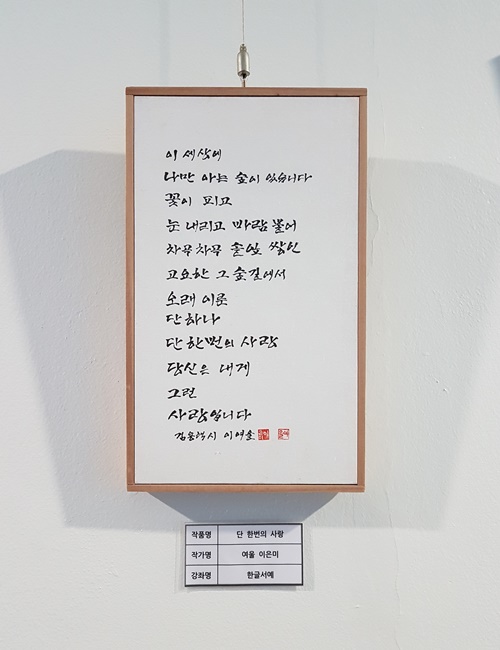 이 세상에
나만 아는 숲이 있습니다
꽃이 피고
눈 내리고 바람 불어
차곡차곡 솔잎 쌓인
고요한 그 숲길에서
오래 이룬
단 하나
단 한번의 사랑
당신은 내게
그런
사랑입니다
김용택시 이여울
작품명 단 한번의 사랑
작가명 여울 이은미
강좌명 한글서예